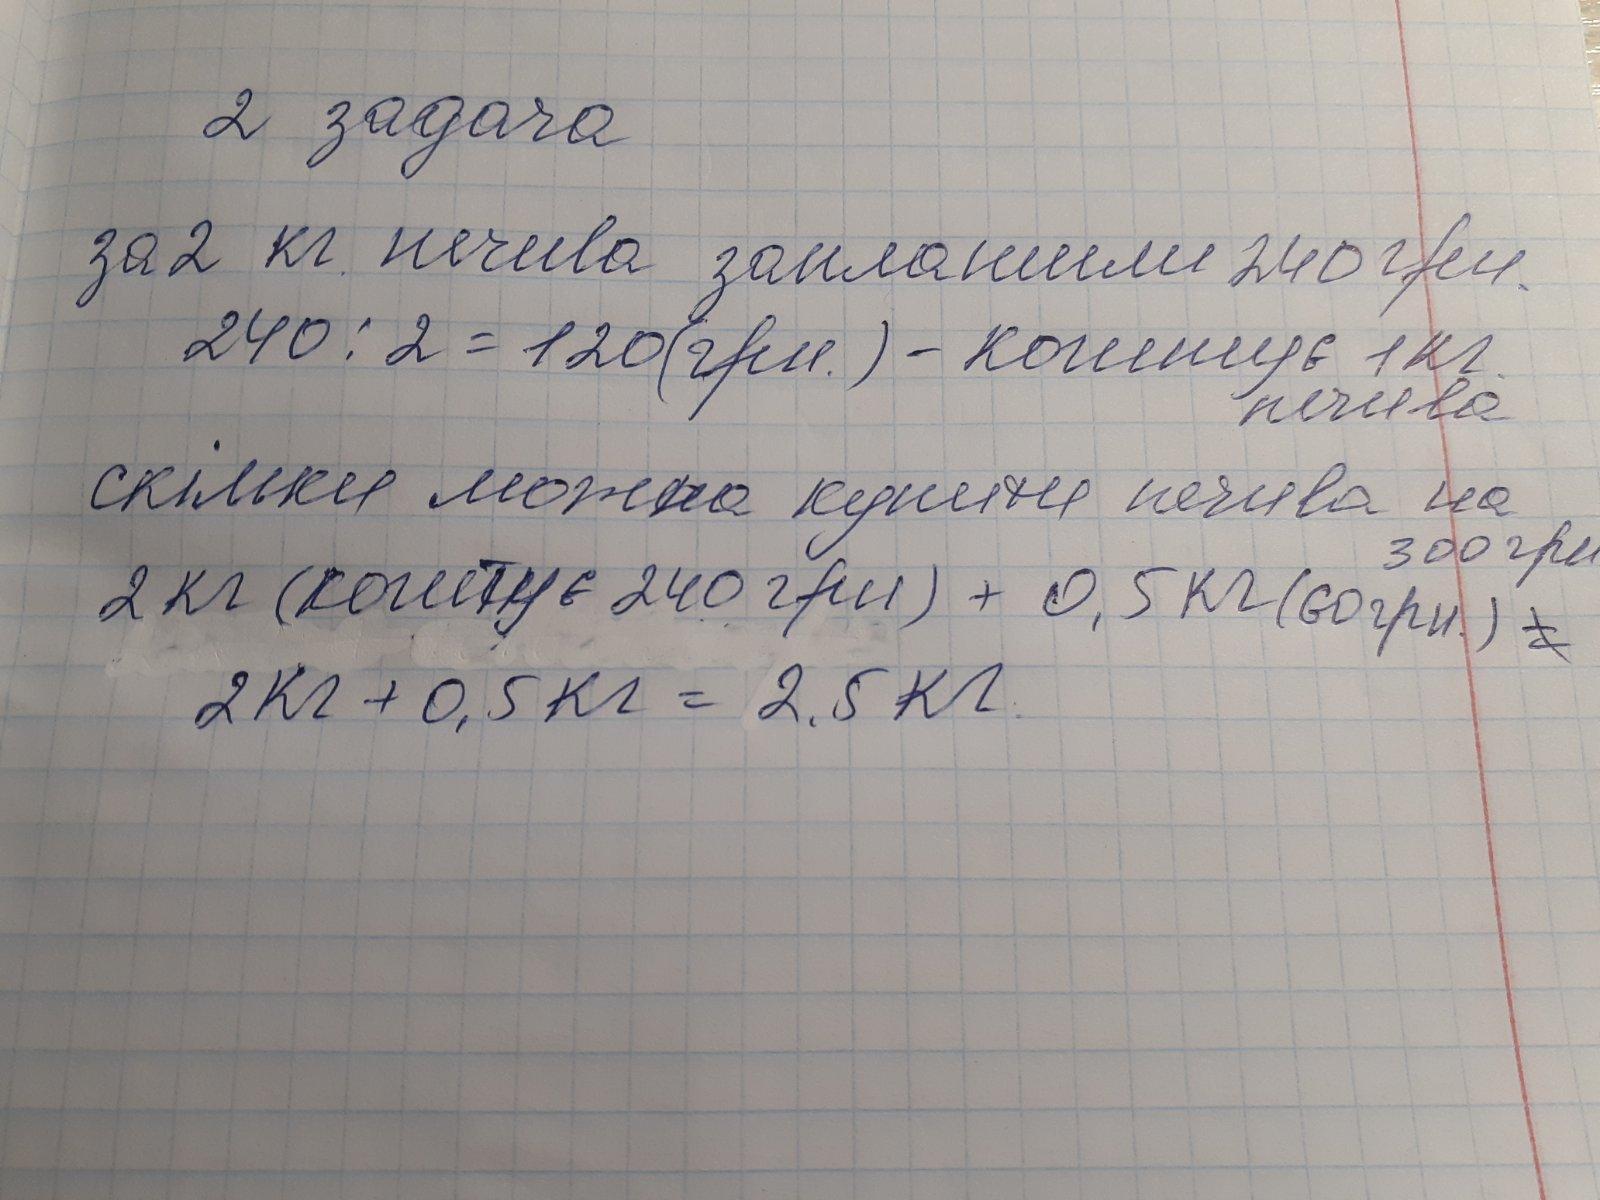 2 задача
за 2 кг. печива заплатили 240 грн.
240 : 2 = 120 (грн.) - коштує 1 кг.
печива
скільки можна купити печива на
300 грн
2 кг (коштує 240 грн) + 0,5 кг (60 грн.) =
2 кг + 0,5 кг = 2.5 кг.